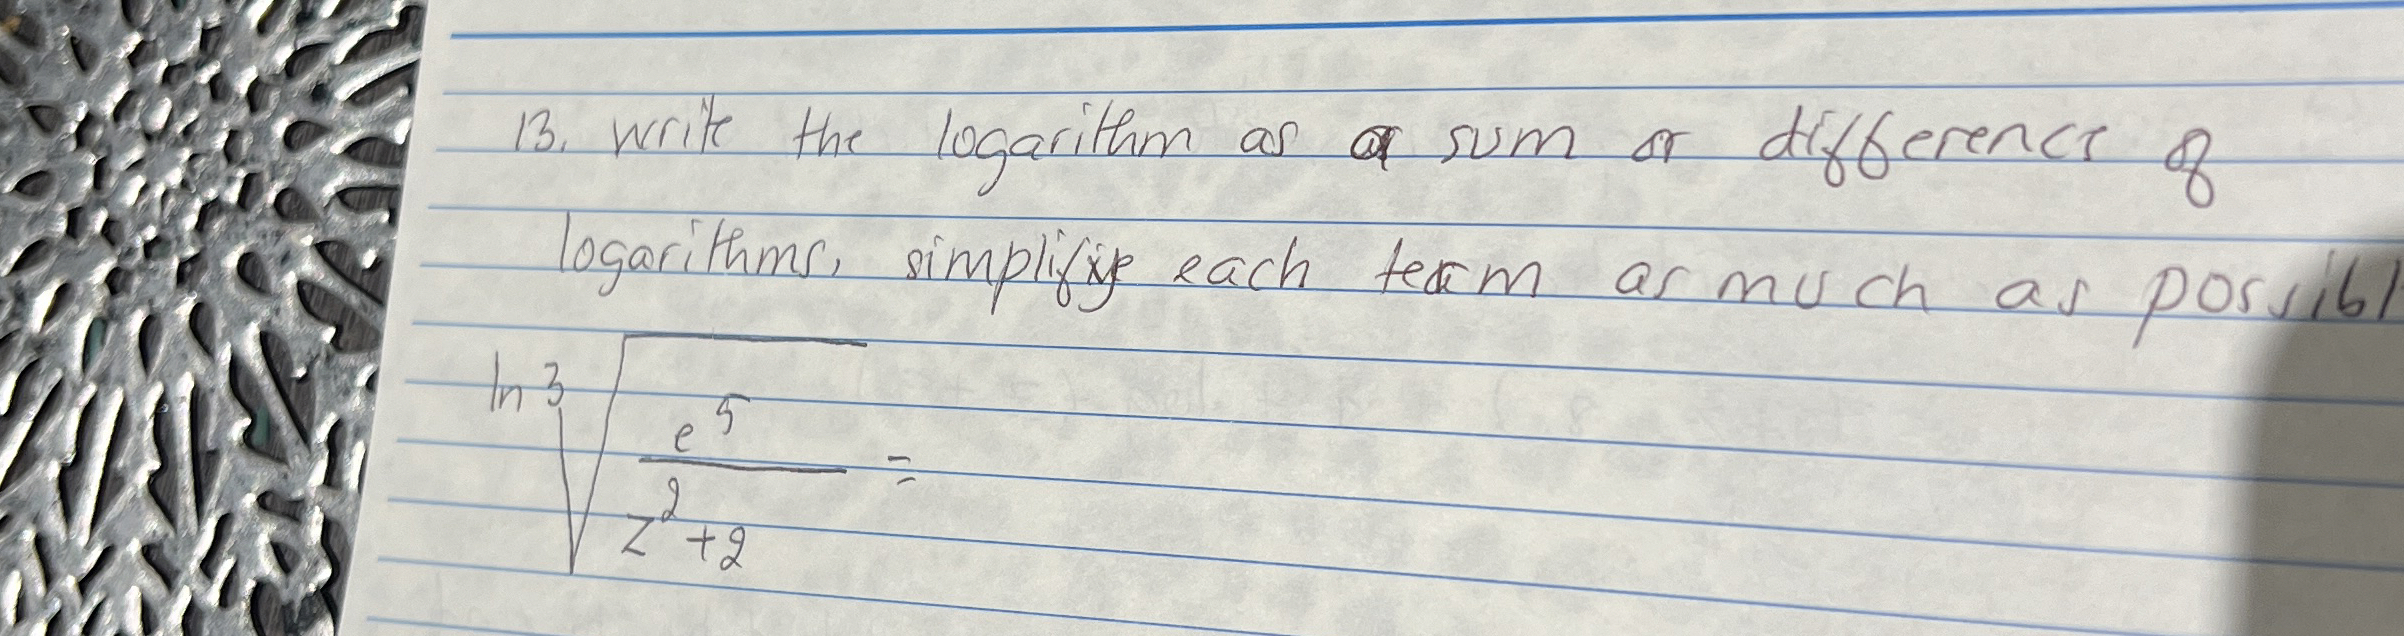 13. write the logarithm as a sum or difference of
logarithms, simplify each term as much as possibl
ln ∛(e^5 / (z^2 + 2)) =